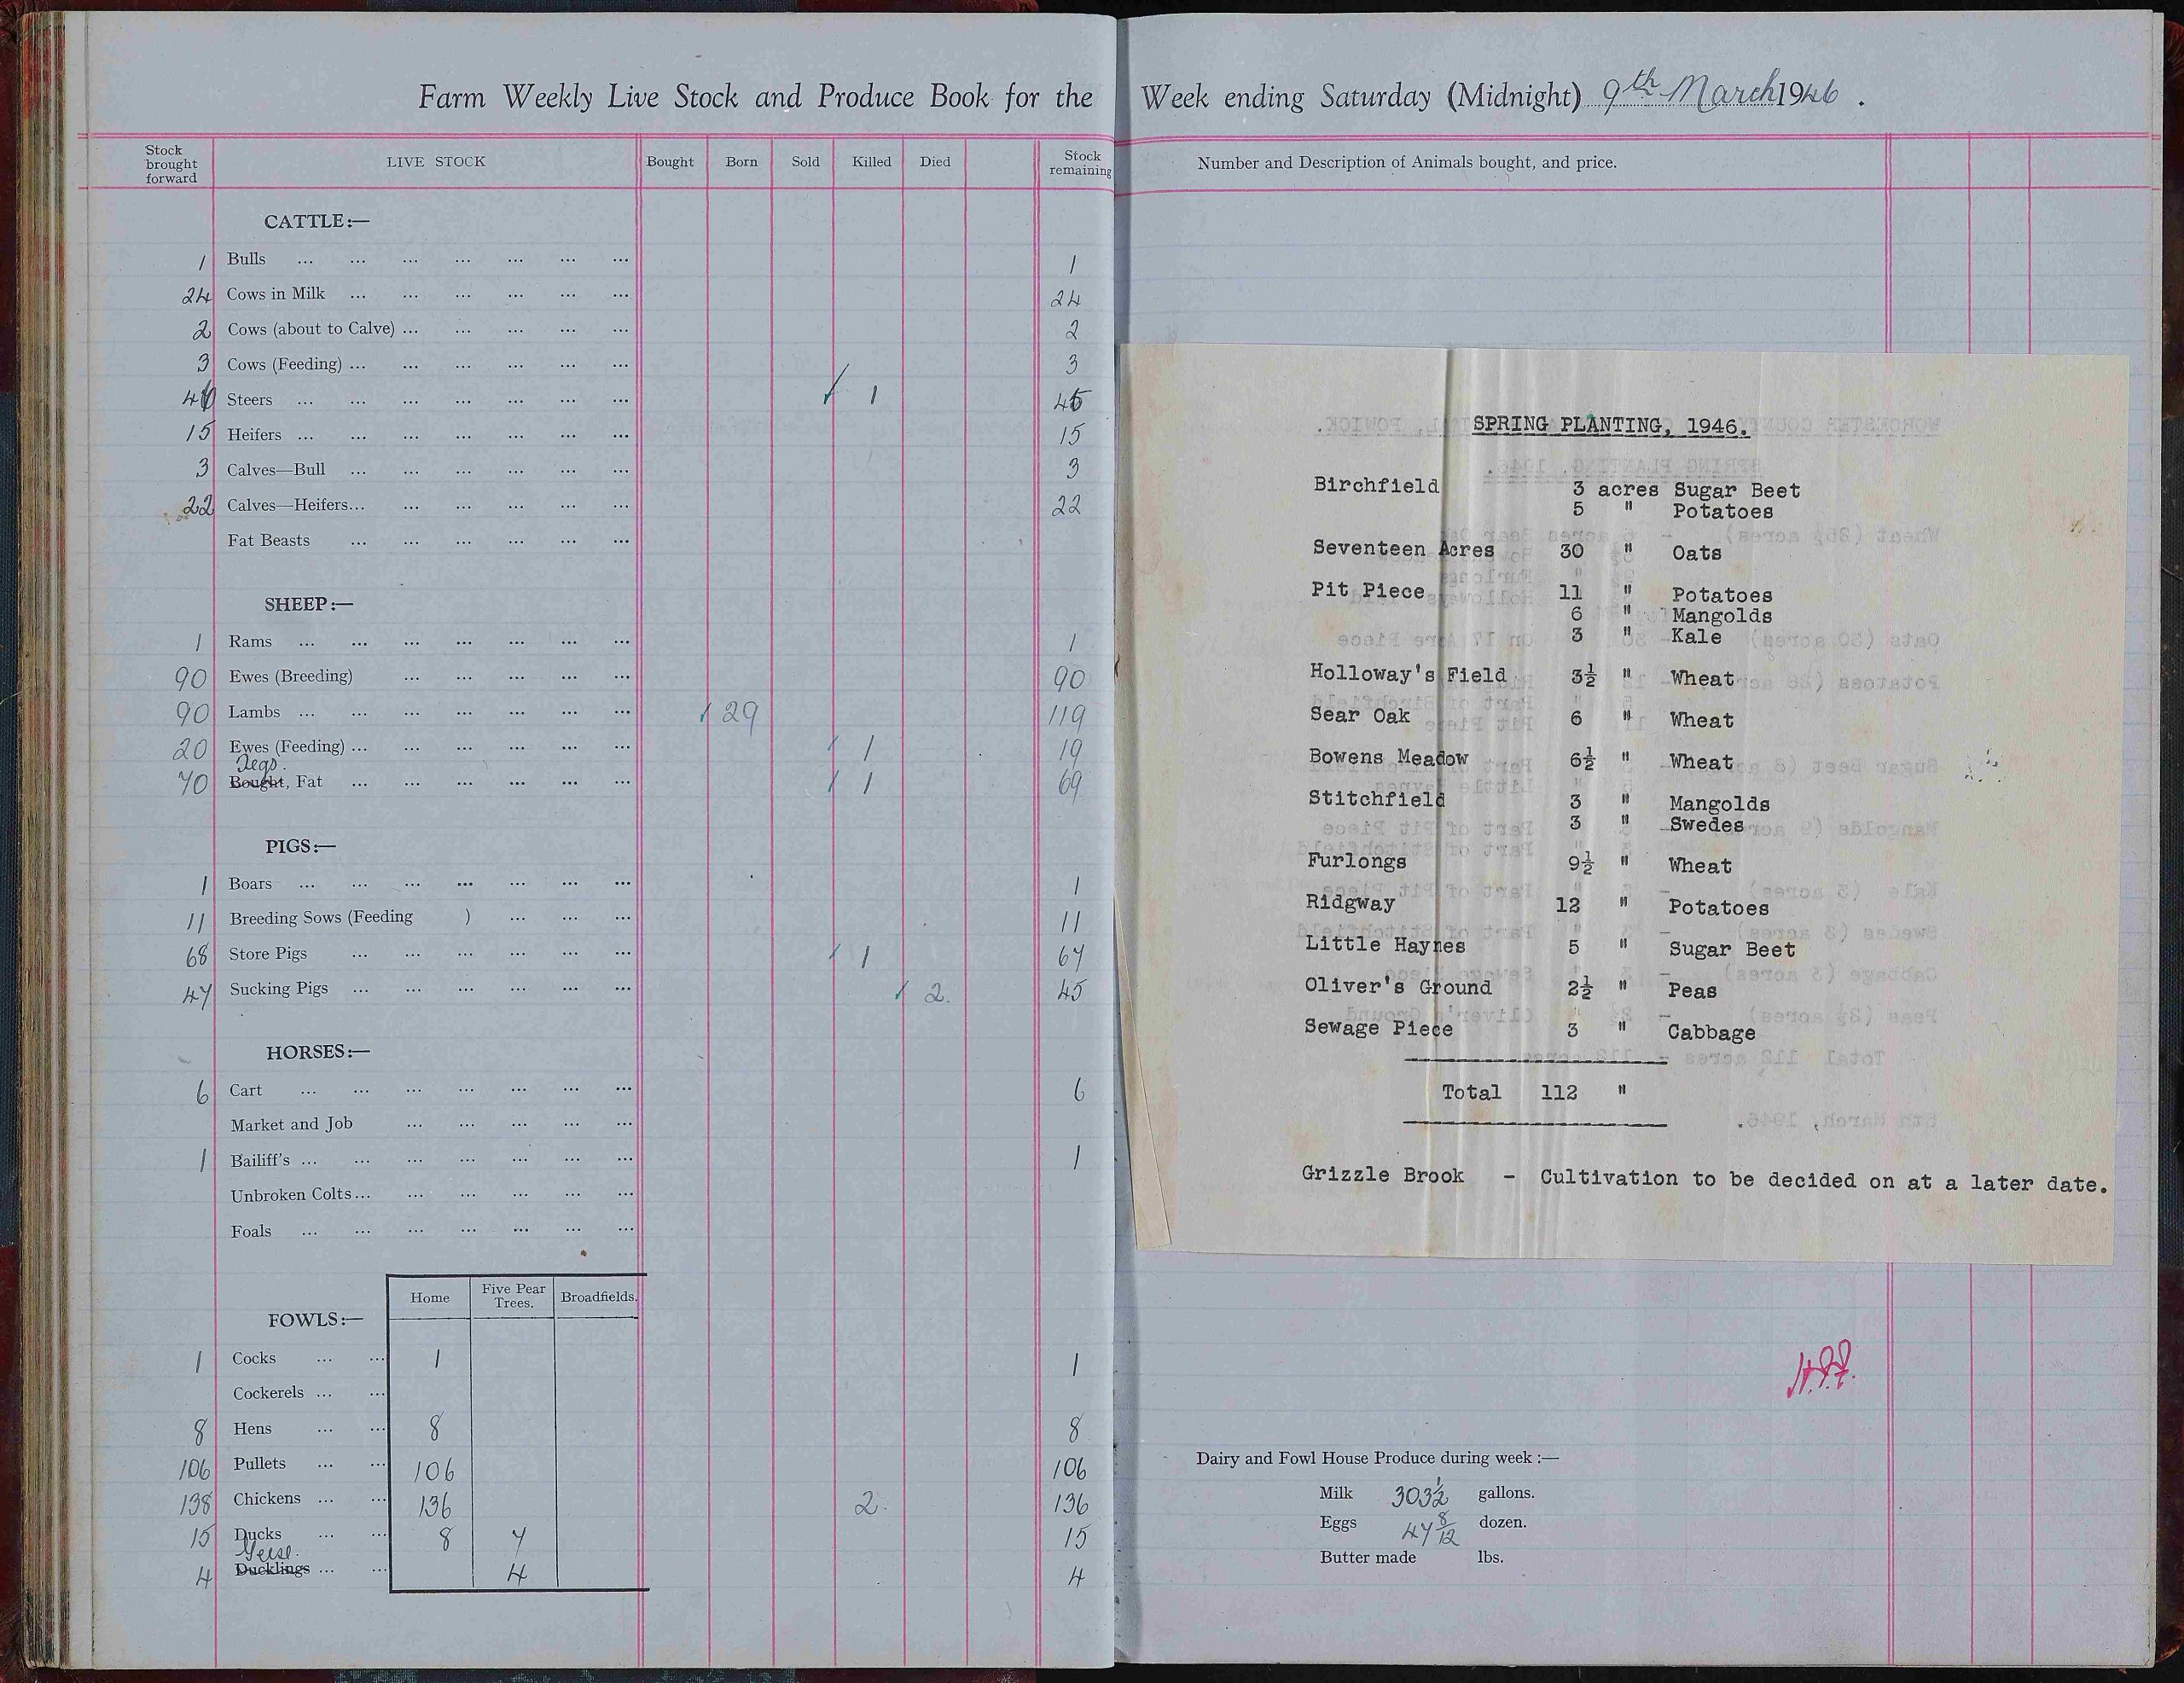 Farm Weekly Live Stock and Produce Book for the Week ending Saturday (Midnight) 9th March 1946.
Stock brought forward LIVE STOCK Bought Born Sold Killed Died Stock remaining
CATTLE:—
1 Bulls ... ... ... ... ... ... ... 1
24 Cows in Milk ... ... ... ... ... ... 24
2 Cows (about to Calve) ... ... ... ... ... 2
3 Cows (Feeding) ... ... ... ... ... ... 3
46 Steers ... ... ... ... ... ... ... ✓ 1 45
15 Heifers ... ... ... ... ... ... ... 15
3 Calves—Bull ... ... ... ... ... ... 3
22 Calves—Heifers... ... ... ... ... ... 22
Fat Beasts ... ... ... ... ... ...
SHEEP:—
1 Rams ... ... ... ... ... ... ... 1
90 Ewes (Breeding) ... ... ... ... ... 90
90 Lambs ... ... ... ... ... ... ... ✓ 29 119
20 Ewes (Feeding) ... ... ... ... ... ... ✓ 1 19
Tegs.
70 Bought, Fat ... ... ... ... ... ... ✓ 1 69
PIGS:—
1 Boars ... ... ... ... ... ... ... 1
11 Breeding Sows (Feeding ) ... ... ... 11
68 Store Pigs ... ... ... ... ... ... ✓ 1 67
47 Sucking Pigs ... ... ... ... ... ... ✓ 2. 45
HORSES:—
6 Cart ... ... ... ... ... ... ... 6
Market and Job ... ... ... ... ...
1 Bailiff's ... ... ... ... ... ... ... 1
Unbroken Colts... ... ... ... ... ...
Foals ... ... ... ... ... ... ...
Home Five Pear Trees. Broadfields.
FOWLS:—
1 Cocks ... ... 1 1
Cockerels ... ...
8 Hens ... ... 8 8
106 Pullets ... ... 106 106
138 Chickens ... ... 136 2. 136
15 Ducks ... ... 8 7 15
Geese.
4 Ducklings ... ... 4 4
Number and Description of Animals bought, and price.
SPRING PLANTING, 1946.
Birchfield 3 acres Sugar Beet
5 " Potatoes
Seventeen Acres 30 " Oats
Pit Piece 11 " Potatoes
6 " Mangolds
3 " Kale
Holloway's Field 3½ " Wheat
Sear Oak 6 " Wheat
Bowens Meadow 6½ " Wheat
Stitchfield 3 " Mangolds
3 " Swedes
Furlongs 9½ " Wheat
Ridgway 12 " Potatoes
Little Haynes 5 " Sugar Beet
Oliver's Ground 2½ " Peas
Sewage Piece 3 " Cabbage
Total 112 "
Grizzle Brook - Cultivation to be decided on at a later date.
Dairy and Fowl House Produce during week :—
Milk 303½ gallons.
Eggs 47 8/12 dozen.
Butter made lbs.